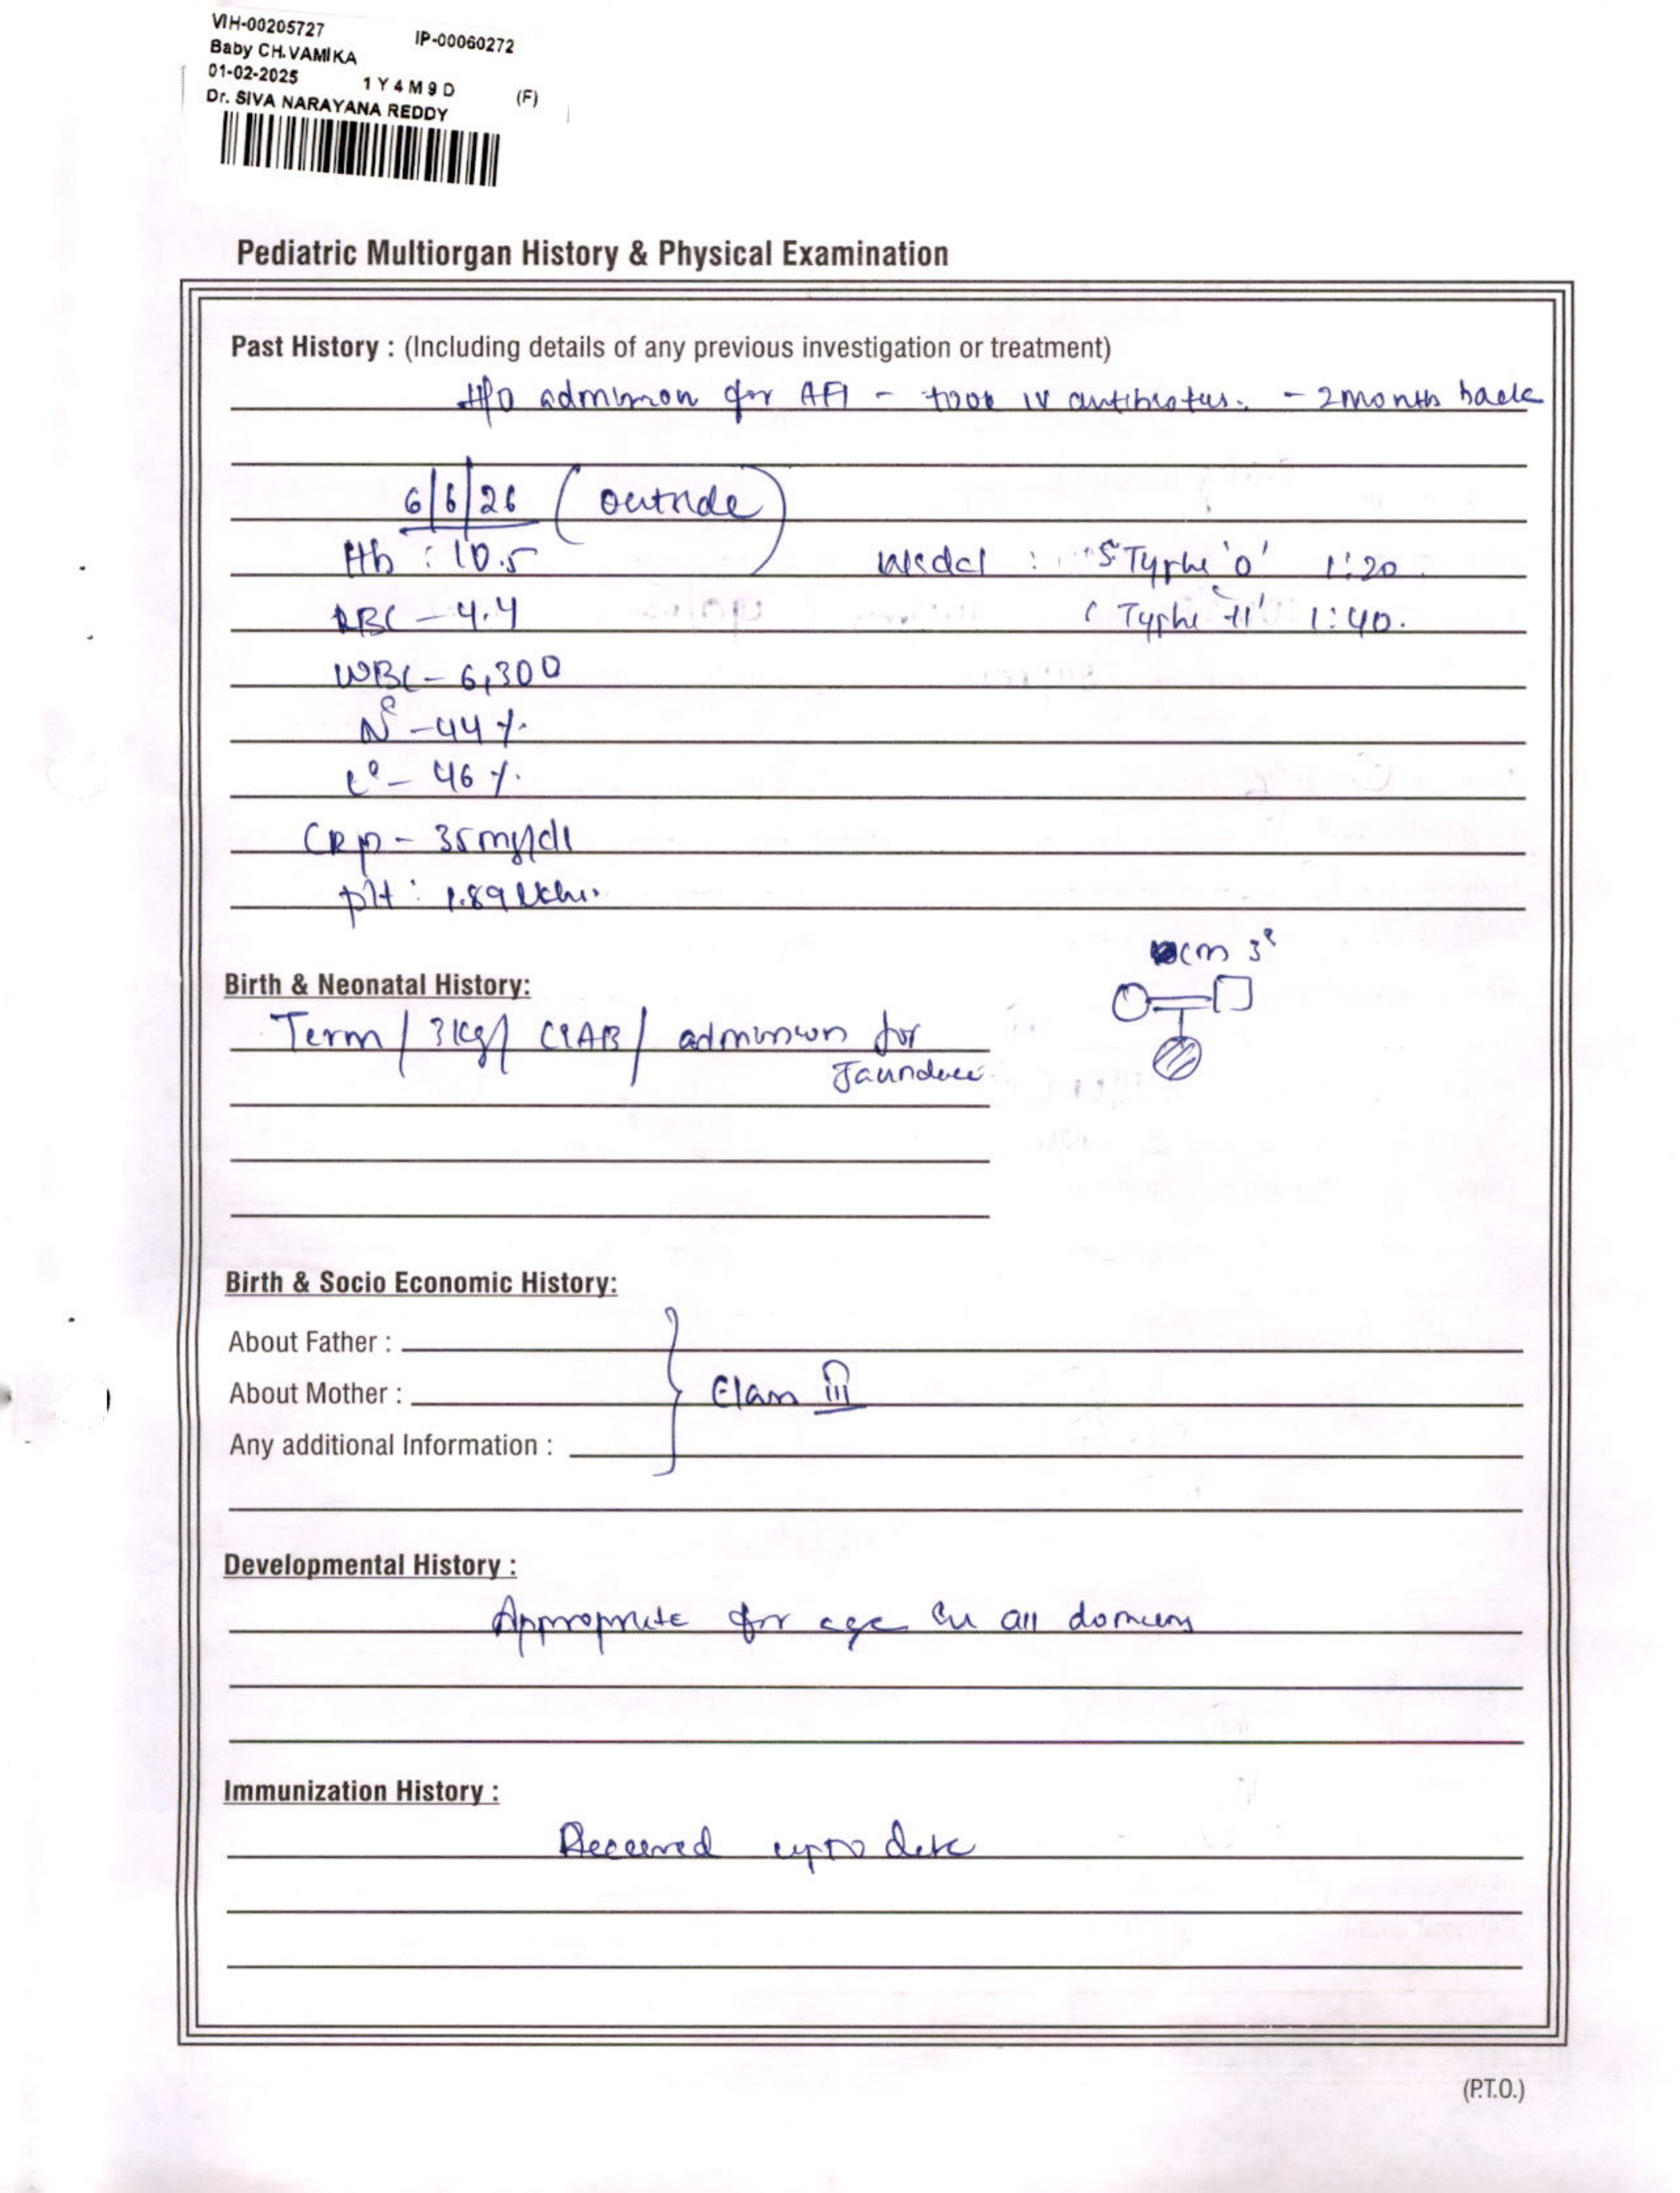 VIH-00205727 IP-00060272
Baby CH.VAMIKA
01-02-2025 1Y4M9D (F)
Dr. SIVA NARAYANA REDDY
Pediatric Multiorgan History & Physical Examination
Past History : (Including details of any previous investigation or treatment)
H/O admission for AFI - took IV antibiotics. - 2 month back
6/6/26 (outside)
Hb : 10.5 Widal : S Typhi 'O' 1:20
RBC - 4.4 Typhi 'H' 1:40.
WBC - 6,300
N° - 44 %.
L° - 46 %.
CRP - 35 mg/dl
plt : 1.89 lakhs.
cm 3°
Birth & Neonatal History:
Term / 3 kg / CIAB / admission for
Jaundice
Birth & Socio Economic History:
About Father :
About Mother : Class III
Any additional Information :
Developmental History :
Appropriate for age in all domains
Immunization History :
Received upto date
(P.T.O.)